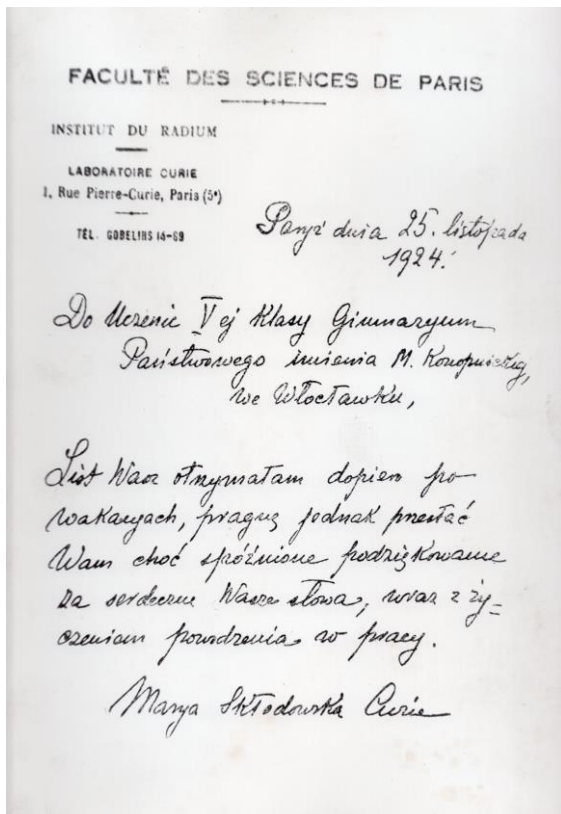 FACULTÉ DES SCIENCES DE PARIS
INSTITUT DU RADIUM
LABORATOIRE CURIE
1, Rue Pierre-Curie, Paris (5ᵉ)
TÉL. GOBELINS 14-69
Paryż dnia 25. listopada
1924.
Do Uczenic V ej Klasy Gimnazyum
Państwowego imienia M. Konopnickiej,
we Włocławku,
List Wasz otrzymałam dopiero po
wakacyach, pragnę jednak przesłać
Wam choć spóźnione podziękowanie
za serdeczne Wasze słowa, wraz z ży=
czeniam powodzenia w pracy.
Marya Skłodowska Curie